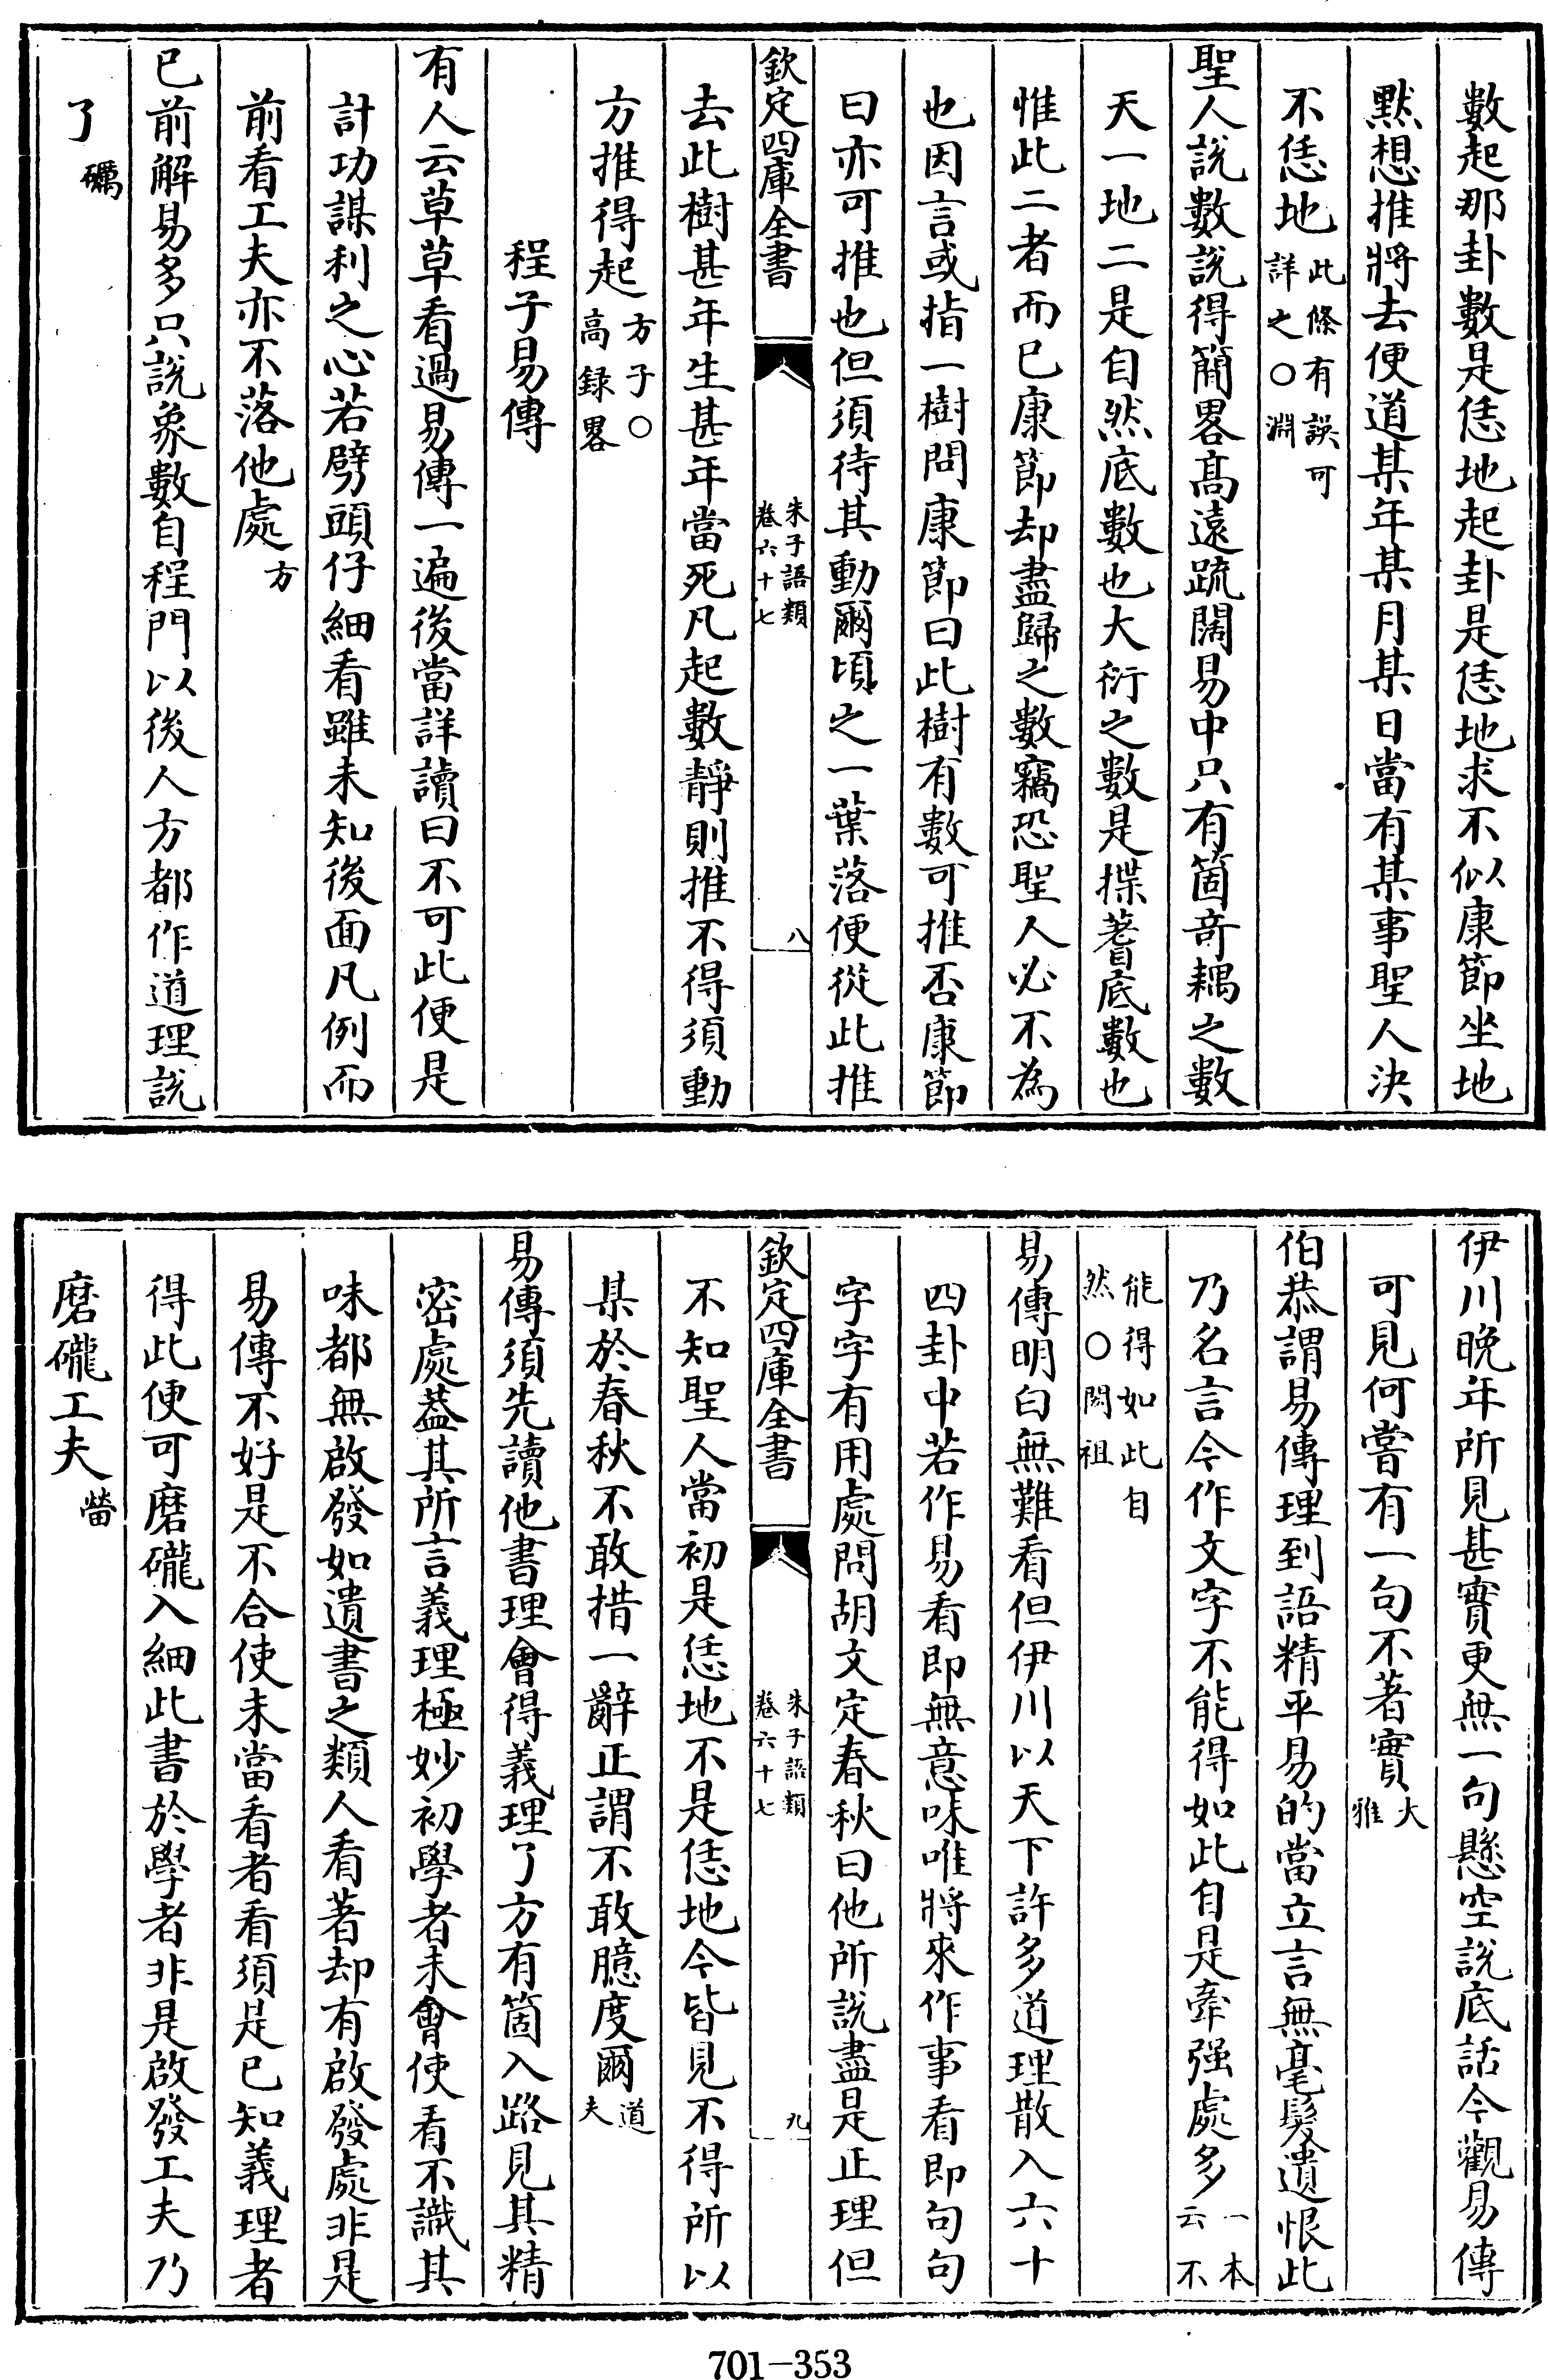 數起那卦數是恁地起卦是恁地求不似康節坐地
默想推將去便道某年某月某日當有某事聖人決
不恁地此條有誤可詳之○淵
聖人說數說得簡畧髙遠疏闊易中只有箇竒耦之數
天一地二是自然底數也大衍之數是揲蓍底數也
惟此二者而已康節却盡歸之數竊恐聖人必不為
也因言或指一樹問康節曰此樹有數可推否康節
曰亦可推也但須待其動爾頃之一葉落便從此推
欽定四庫全書
朱子語類
卷六十七
八
去此樹甚年生甚年當死凡起數靜則推不得須動
方推得起方子○高録畧
程子易傳
有人云草草看過易傳一遍後當詳讀曰不可此便是
計功謀利之心若劈頭仔細看雖未知後面凡例而
前看工夫亦不落他處方
已前解易多只說象數自程門以後人方都作道理說
了礪
伊川晚年所見甚實更無一句懸空說底話今觀易傳
可見何嘗有一句不著實大雅
伯恭謂易傳理到語精平易的當立言無毫髮遺恨此
乃名言今作文字不能得如此自是牽强處多一本云不
能得如此自然○閎祖
易傳明白無難看但伊川以天下許多道理散入六十
四卦中若作易看即無意味唯將來作事看即句句
字字有用處問胡文定春秋曰他所說盡是正理但
欽定四庫全書
朱子語類
卷六十七
九
不知聖人當初是恁地不是恁地今皆見不得所以
某於春秋不敢措一辭正謂不敢臆度爾道夫
易傳須先讀他書理會得義理了方有箇入路見其精
密處葢其所言義理極妙初學者未會使看不識其
味都無啟發如遺書之類人看著却有啟發處非是
易傳不好是不合使未當看者看須是已知義理者
得此便可磨礲入細此書於學者非是啟發工夫乃
磨礲工夫㽦
701-353